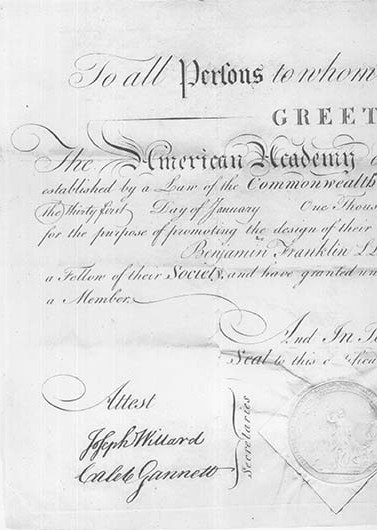 To all Persons to whom
GREET
The American Academy
established by a Law of the Commonwealth
the Thirty first Day of January One Thous
for the purpose of promoting the design of their
Benjamin Franklin LL
a Fellow of their Society, and have granted un
a Member.
And In Te
Seal to this
Attest
Joseph Willard
Caleb Gannett
Secretaries